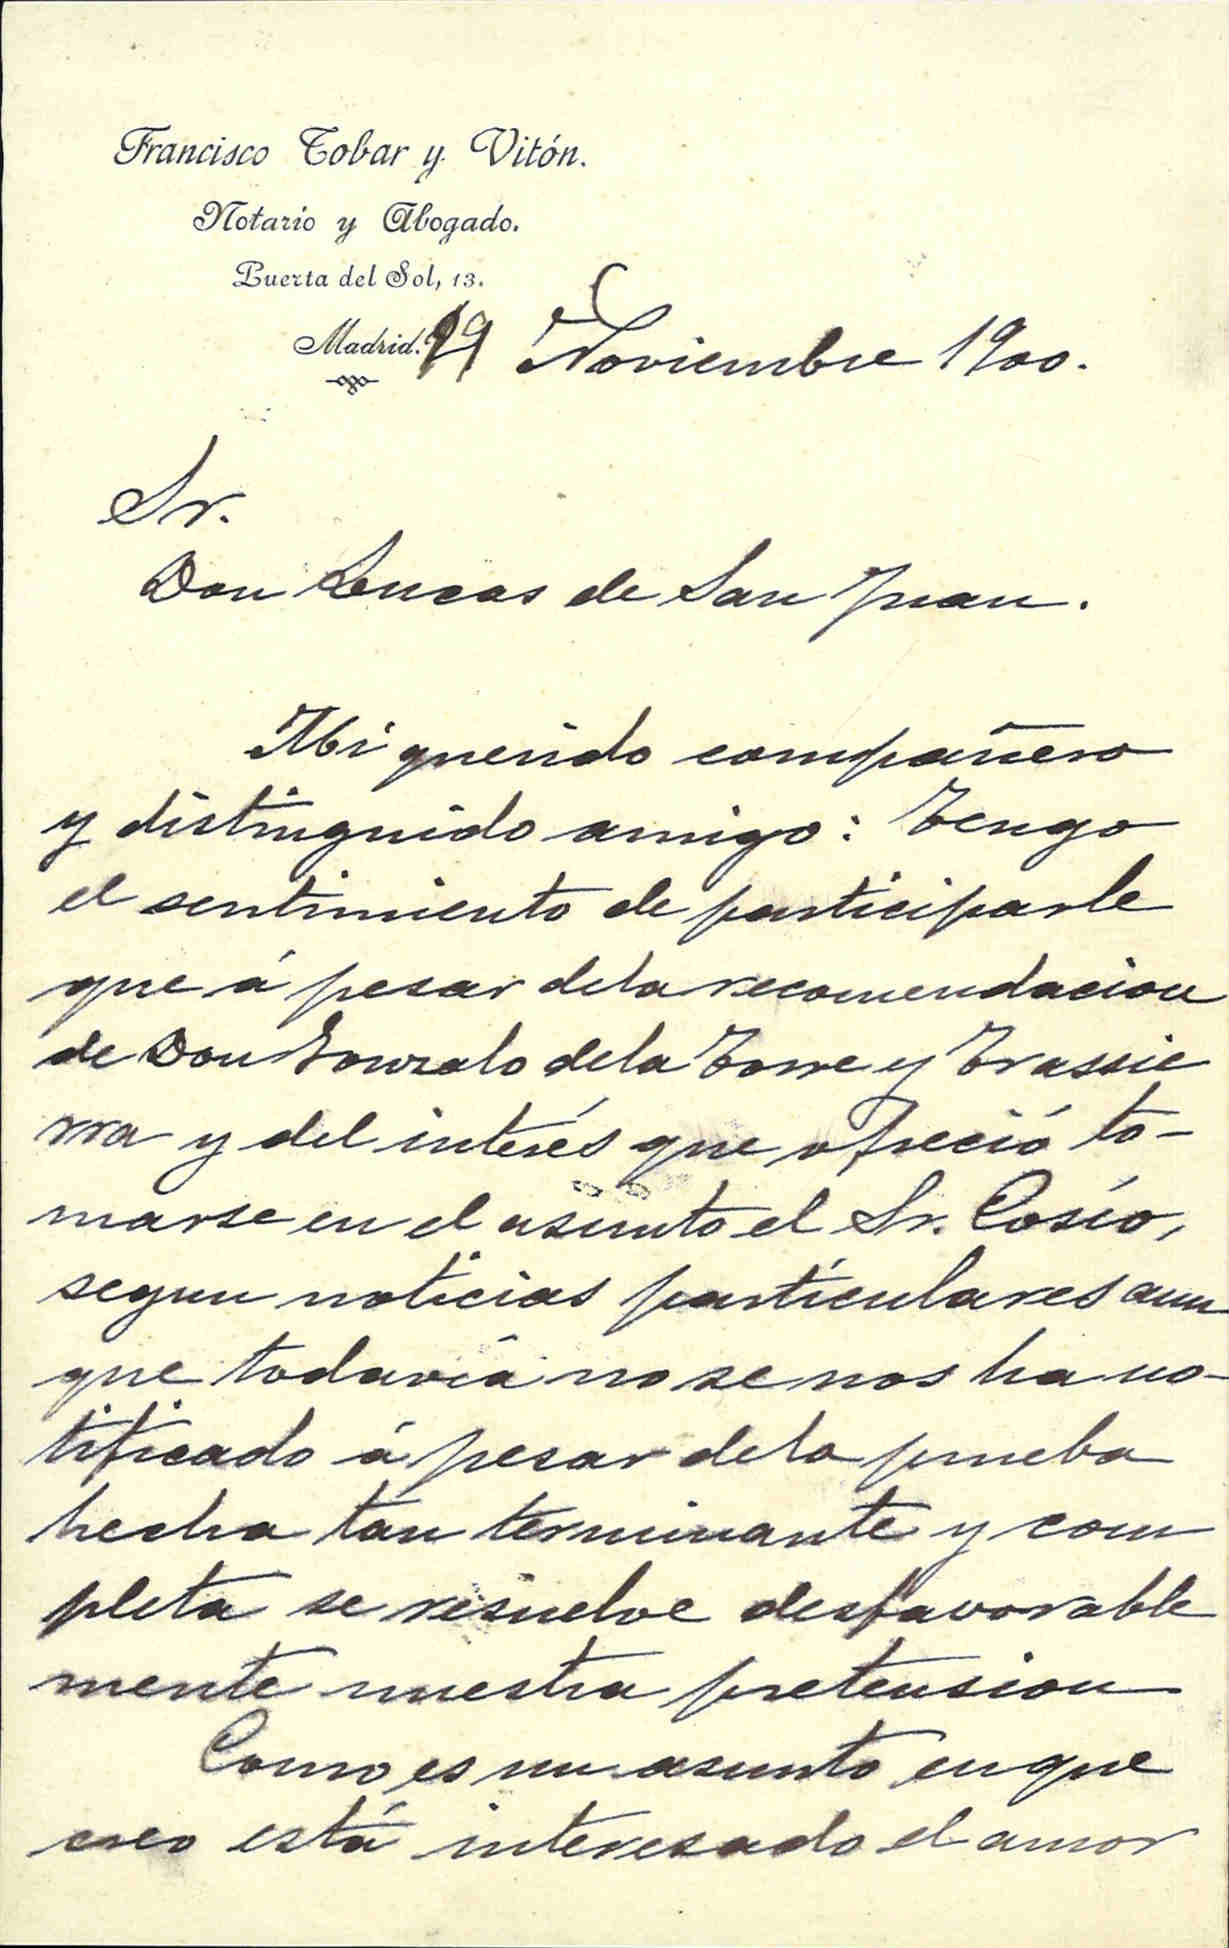 Francisco Tobar y Vitón.
Notario y Abogado.
Puerta del Sol, 13.
Madrid. 29 Noviembre 1900.
Sr.
Don Lucas de San Juan.
Mi querido compañero
y distinguido amigo: Tengo
el sentimiento de participarle
que á pesar de la recomendacion
de Don Gonzalo de la Torre y Trassie
rra y del interés que ofreció to-
marse en el asunto el Sr. Cosío,
segun noticias particulares aun
que todavía no se nos ha no-
tificado á pesar de la prueba
hecha tan terminante y com
pleta se resuelve desfavorable
mente nuestra pretension
Como es un asunto en que
creo está interesado el amor